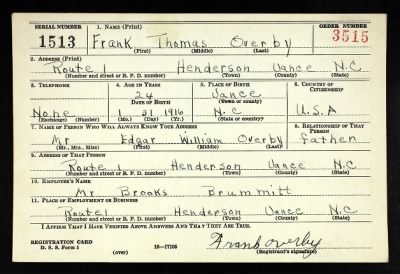 SERIAL NUMBER 1. NAME (Print) ORDER NUMBER
1513 Frank Thomas Overby 3515
(First) (Middle) (Last)
2. ADDRESS (Print)
Route 1 Henderson Vance N.C
(Number and street or R. F. D. number) (Town) (County) (State)
3. TELEPHONE 4. AGE IN YEARS 5. PLACE OF BIRTH 6. COUNTRY OF CITIZENSHIP
24 Vance
DATE OF BIRTH (Town or county)
None 1 31 1916 N.C U.S.A
(Exchange) (Number) (Mo.) (Day) (Yr.) (State or country)
7. NAME OF PERSON WHO WILL ALWAYS KNOW YOUR ADDRESS 8. RELATIONSHIP OF THAT PERSON
Mr Edgar William Overby father
(Mr., Mrs., Miss) (First) (Middle) (Last)
9. ADDRESS OF THAT PERSON
Route 1 Henderson Vance N.C
(Number and street or R. F. D. number) (Town) (County) (State)
10. EMPLOYER'S NAME
Mr Brooks Brummitt
11. PLACE OF EMPLOYMENT OR BUSINESS
Route 1 Henderson Vance N.C
(Number and street or R. F. D. number) (Town) (County) (State)
I AFFIRM THAT I HAVE VERIFIED ABOVE ANSWERS AND THAT THEY ARE TRUE.
REGISTRATION CARD
D. S. S. Form 1 16—17105 Frank Overby
(over) (Registrant's signature)